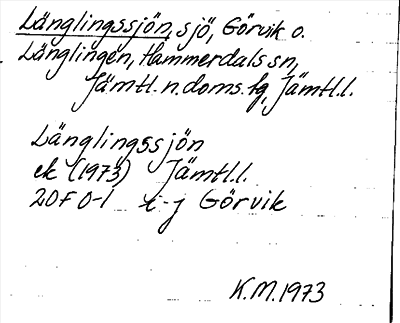 Länglingssjön, sjö, Görvik o.
Länglingen, Hammerdals sn,
Jämtl. n. doms. fg, Jämtl.l.
Länglingssjön
ek (1973) Jämtl.l.
20F 0-1 i-j Görvik
K.M. 1973